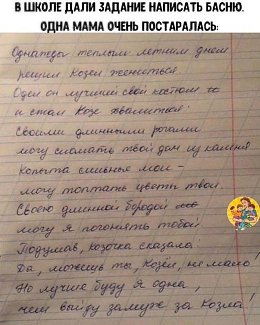 В ШКОЛЕ ДАЛИ ЗАДАНИЕ НАПИСАТЬ БАСНЮ.
ОДНА МАМА ОЧЕНЬ ПОСТАРАЛАСЬ:
Однажды теплым летним днем
решил Козел жениться.
Одел он лучший свой костюм
и стал Козе хвалиться:
Своими длинными рогами
могу сломать твой дом из камня
Копыта сильные мои –
могу топтать цветы твои.
Своею длинной бородой
могу я погонять тобой
Подумав, козочка сказала:
Да, можешь ты, Козёл, не мало!
Но лучше буду я одна,
чем выйду замуж за Козла!